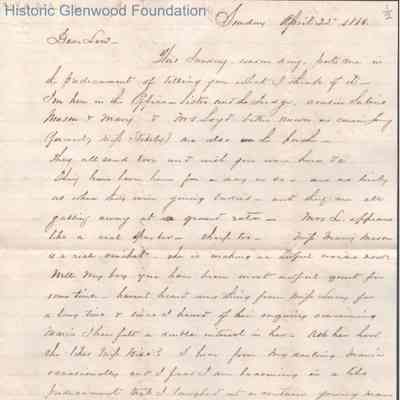 Historic Glenwood Foundation
Sunday April 22d 1866.
Dear Low -
This Sunday, warm day, puts me in
the predicament of telling you what I think of it -
I'm here in the Office - Sister and the Judge, cousin
Mason & Mary & Mrs Loyd better known as
(formerly Miss) are also on the porch -
They all send love and wish you were here to
They have been here for a day or so - and are as lively
as when they were young - and they are all
gabbing away at a great rate - Mrs L. appears
like a real - Miss Mary Mason
is a real - she is making an awful noise now
Well My boy you have been most awful quiet for
some time - havent heard any thing from Miss for
a long time & since I heard of her enquiries concerning
Marie I have felt a double interest in her - Ask her how
she likes Miss I hear from My darling Marie
occasionally and I fear I am becoming in a like
predicament that I laughed at a certain young man